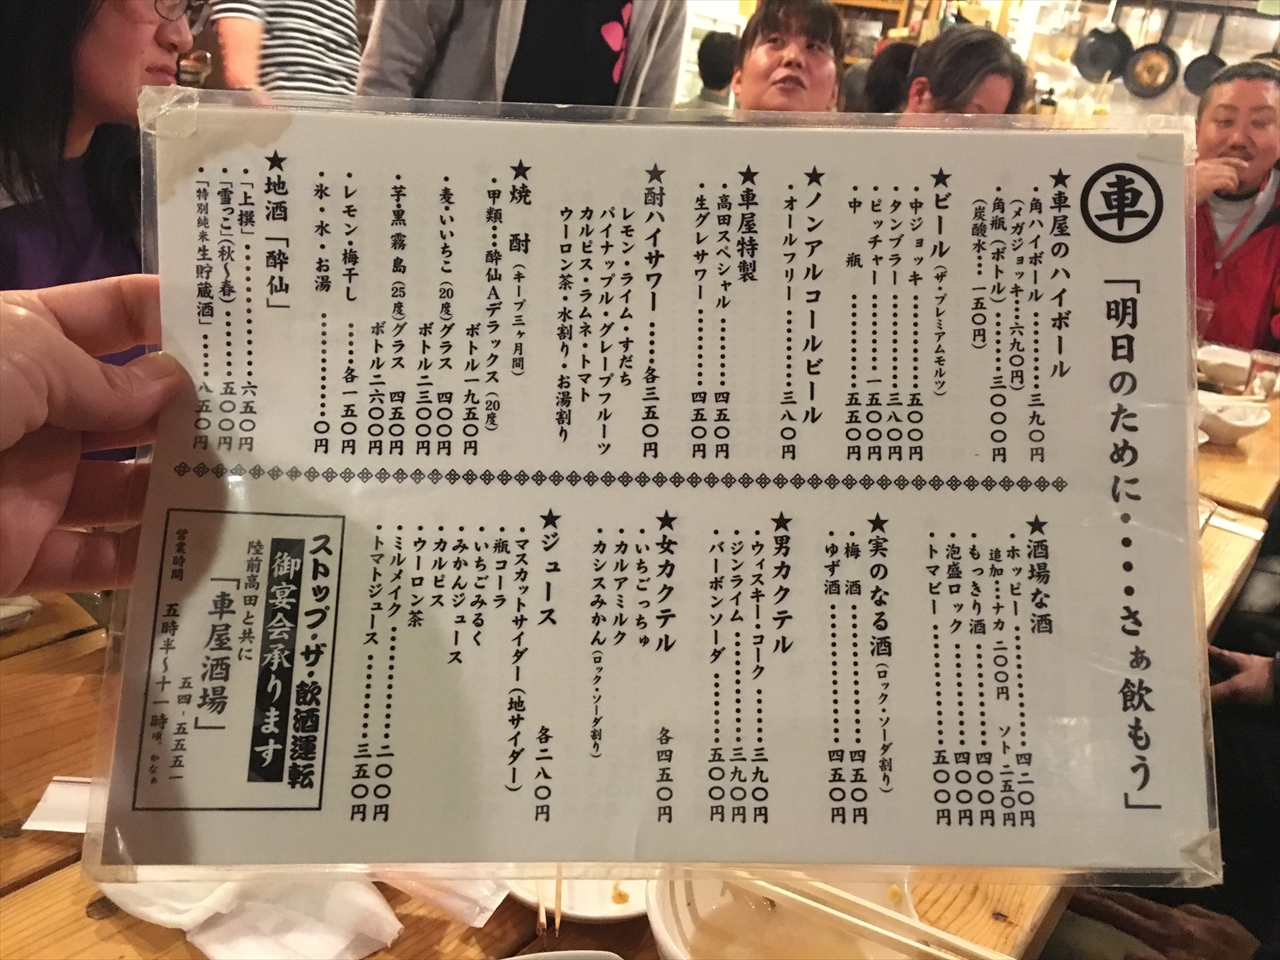 車 「明日のために・・・・さぁ飲もう」
★車屋のハイボール
・角ハイボール………三九〇円
(メガジョッキ…六九〇円)
・角瓶(ボトル)……三〇〇〇円
(炭酸水……一五〇円)
★ビール(ザ・プレミアムモルツ)
・中ジョッキ…………五〇〇円
・タンブラー…………三八〇円
・ピッチャー………一五〇〇円
・中 瓶 ……………五五〇円
★ノンアルコールビール
・オールフリー………三八〇円
★車屋特製
・高田スペシャル……四五〇円
・生グレサワー………四五〇円
★酎ハイサワー ……各三五〇円
レモン・ライム・すだち
パイナップル・グレープフルーツ
カルピス・ラムネ・トマト
ウーロン茶・水割り・お湯割り
★焼 酎(キープ三ヶ月間)
・甲類…酔仙Aデラックス(20度)
ボトル一九五〇円
・麦・いいちこ(20度)グラス 四〇〇円
ボトル二三〇〇円
・芋・黒霧島(25度)グラス 四五〇円
ボトル二六〇〇円
・レモン・梅干し ……各一五〇円
・氷・水・お湯 …………〇円
★地酒「酔仙」
・「上撰」……………六五〇円
・「雪っこ」(秋〜春)……五〇〇円
・「特別純米生貯蔵酒」……八五〇円
★酒場な酒
・ホッピー……………四二〇円
追加…ナカ 二〇〇円 ソト 二五〇円
・もっきり酒…………四〇〇円
・泡盛ロック…………四〇〇円
・トマビー……………五〇〇円
★実のなる酒(ロック・ソーダ割り)
・梅 酒 ……………五五〇円
・ゆず酒 ……………四五〇円
★男カクテル
・ウィスキー・コーク ……三九〇円
・ジンライム…………三九〇円
・バーボンソーダ ……五〇〇円
★女カクテル 各四五〇円
・いちごっちゅ
・カルアミルク
・カシスみかん(ロック・ソーダ割り)
★ジュース 各二八〇円
・マスカットサイダー(地サイダー)
・瓶コーラ
・いちごみるく
・みかんジュース
・カルピス
・ウーロン茶
・ミルメイク……………二〇〇円
・トマトジュース ………三五〇円
ストップ・ザ・飲酒運転
御宴会承ります
陸前高田と共に
「車屋酒場」
五四-五五五一
営業時間 五時半〜十一時頃、かなぁ